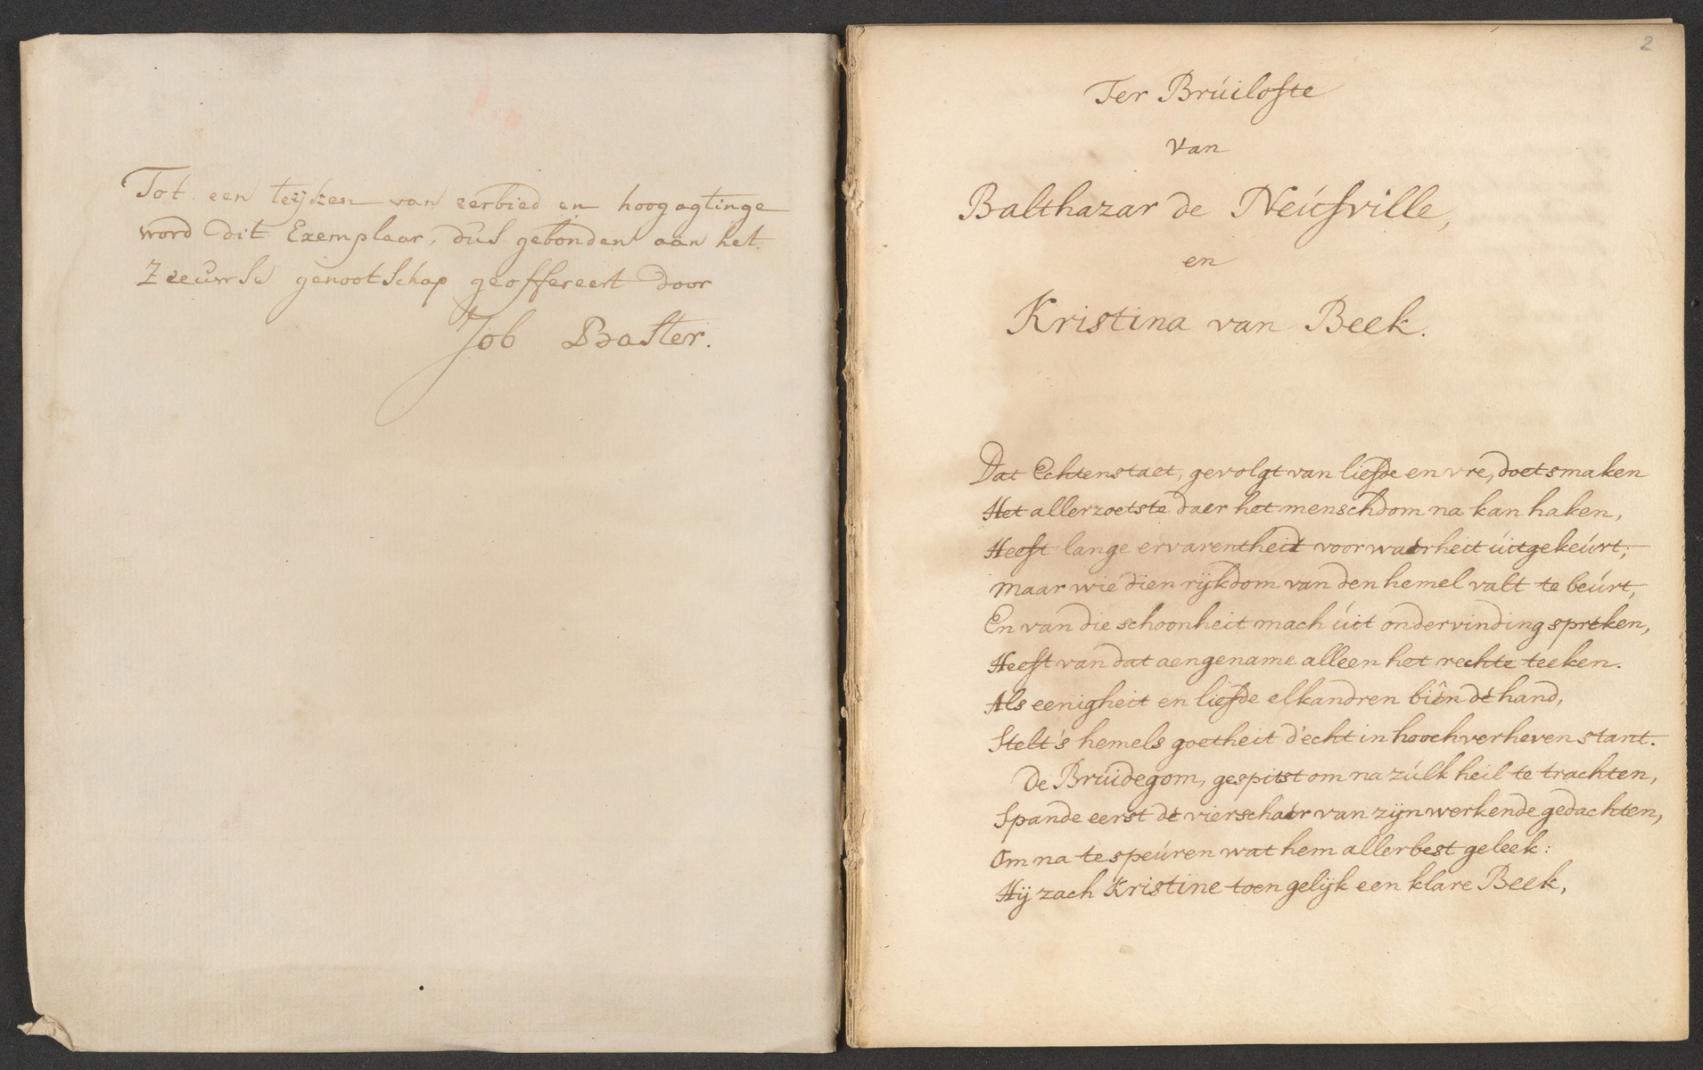 Tot een teijken van eerbied en hoogagtinge
word dit Exemplaar, dus gebonden aan het
Zeeuwsch genootschap geoffereert door
Job Baster.
2
Ter Brúilofte
van
Balthazar de Neúfville,
en
Kristina van Beek.
Dat Echtenstaet, gevolgt van liefde en vre, doet smaken
Het allerzoetste daer het menschdom na kan haken,
Heeft lange ervarentheit voor waerheit úitgekeúrt;
Maar wie dien rijkdom van den hemel valt te beúrt,
En van die schoonheit mach úit ondervinding spreken,
Heeft van dat aengename alleen het rechte teeken.
Als eenigheit en liefde elkandren biên de hand,
Stelt's hemels goetheit d'echt in hooch verheven stant.
De Brúidegom, gespitst om na zúlk heil te trachten,
Spande eerst de vierschaer van zijn werkende gedachten,
Om na te speúren wat hem allerbest geleek:
Hij zach Kristine toen gelijk een klare Beek,